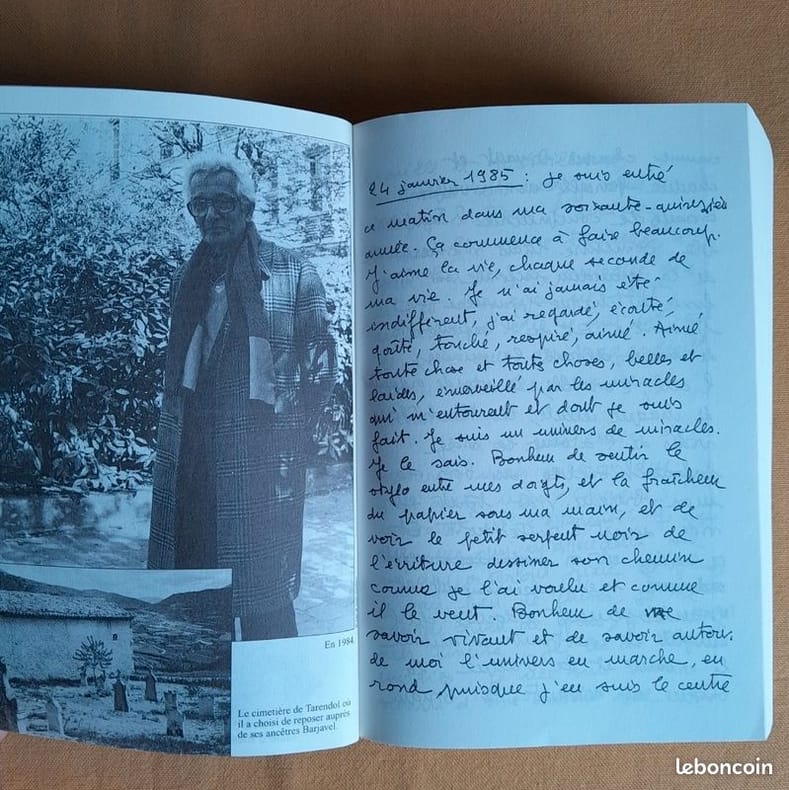 En 1984.
Le cimetière de Tarendol où
il a choisi de reposer auprès
de ses ancêtres Barjavel.
24 janvier 1985 : Je suis entré
ce matin dans ma soixante-quinzième
année. Ça commence à faire beaucoup.
J'aime la vie, chaque seconde de
ma vie. Je n'ai jamais été
indifférent, j'ai regardé, écouté,
goûté, touché, respiré, aimé. Aimé
toute chose et toutes choses, belles et
laides, émerveillé par les miracles
qui m'entourent et dont je suis
fait. Je suis un univers de miracles.
Je le sais. Bonheur de sentir le
stylo entre mes doigts, et la fraîcheur
du papier sous ma main, et de
voir le petit serpent noir de
l'écriture dessiner son chemin
comme je l'ai voulu et comme
il le veut. Bonheur de me
savoir vivant et de savoir autour
de moi l'univers en marche, en
rond puisque j'en suis le centre
leboncoin